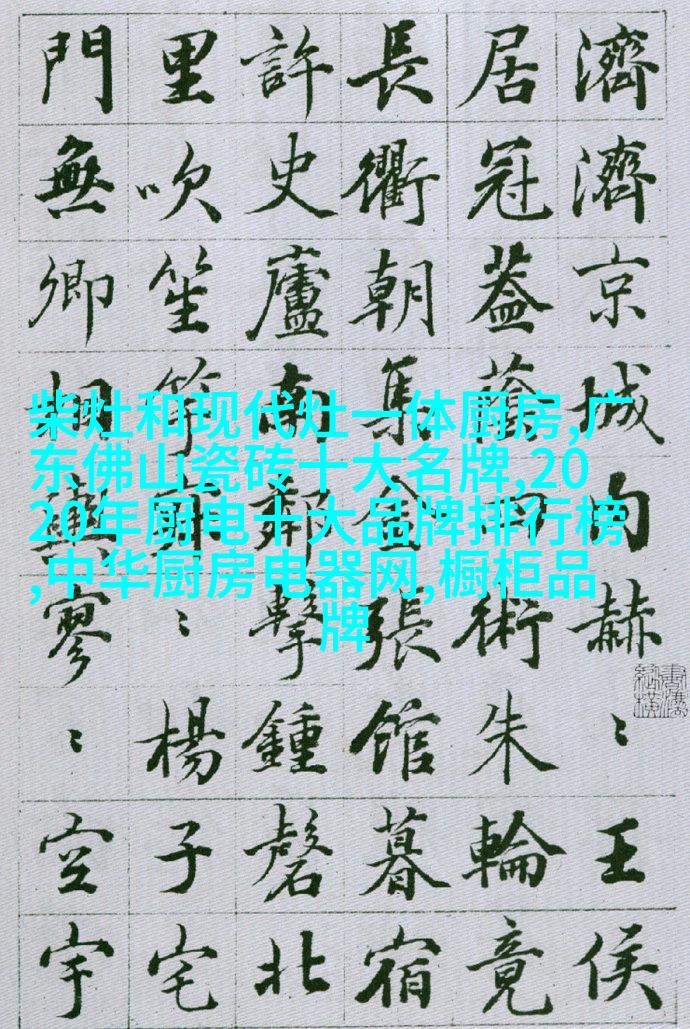 濟濟京城内赫〻王侯
居冠蓋蔭四術朱輪竟
長衢朝集金張館暮宿
許史廬南鄰擊鍾磬北
里吹笙竽寂〻楊子宅
門無卿相輿寥〻空宇
柴灶和现代灶一体厨房,广
东佛山瓷砖十大名牌,20
20年厨电十大品牌排行榜
,中华厨房电器网,橱柜品
牌